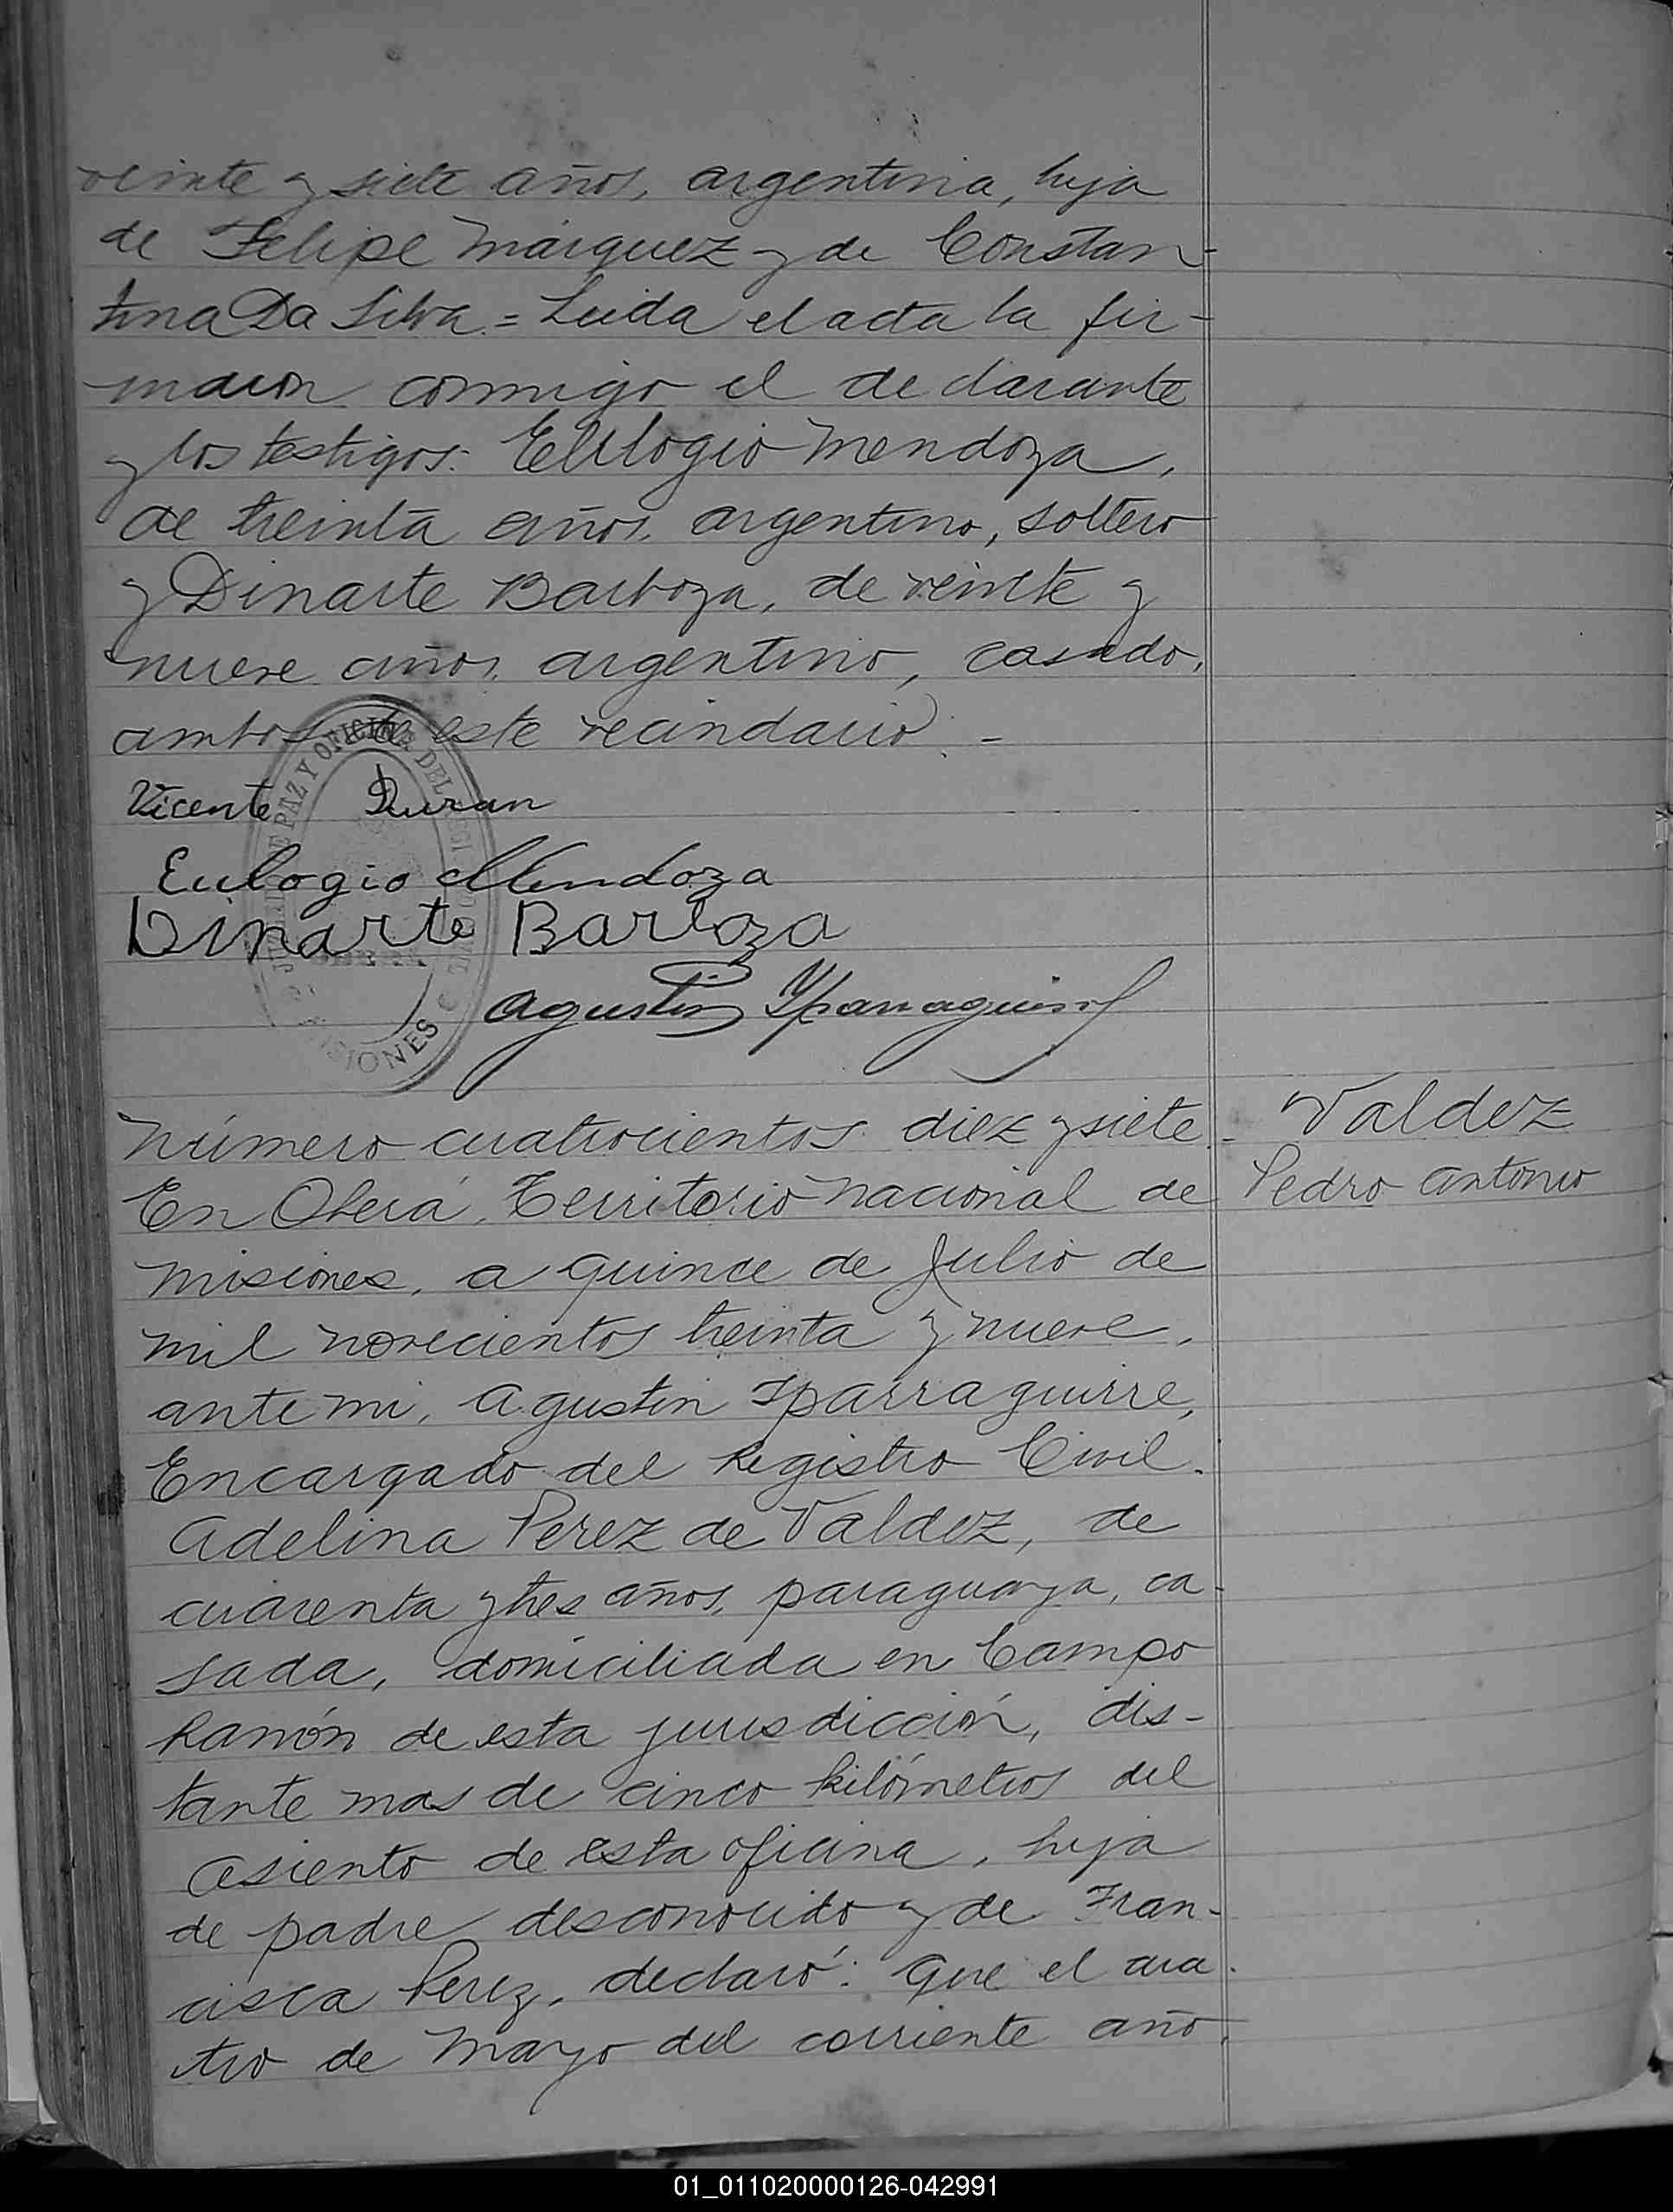 veinte y siete años, argentina, hija
de Felipe Márquez y de Constan-
tina Da Silva.= Leida el acta la fir-
maron conmigo el declarante
y los testigos: Eulogio Mendoza,
de treinta años, argentino, soltero
y Dinarte Barboza, de veinte y
nueve años, argentino, casado,
ambos de este vecindario. -
Vicente Duran
Eulogio Mendoza
Dinarte Barboza
Agustin Yparraguirre
DE PAZ Y OFICINA DEL
MISIONES
Número cuatrocientos diez y siete. -
Valdez
Pedro Antonio
En Oberá, Territorio Nacional de
Misiones, a quince de Julio de
mil novecientos treinta y nueve,
ante mi, Agustin Iparraguirre,
Encargado del Registro Civil.
Adelina Perez de Valdez, de
cuarenta y tres años, paraguaya, ca-
sada, domiciliada en Campo
Ramón de esta jurisdicción, dis-
tante mas de cinco kilómetros del
asiento de esta oficina, hija
de padre desconocido y de Fran-
cisca Perez, declaró: Que el cua-
tro de Mayo del corriente año,
01_011020000126-042991